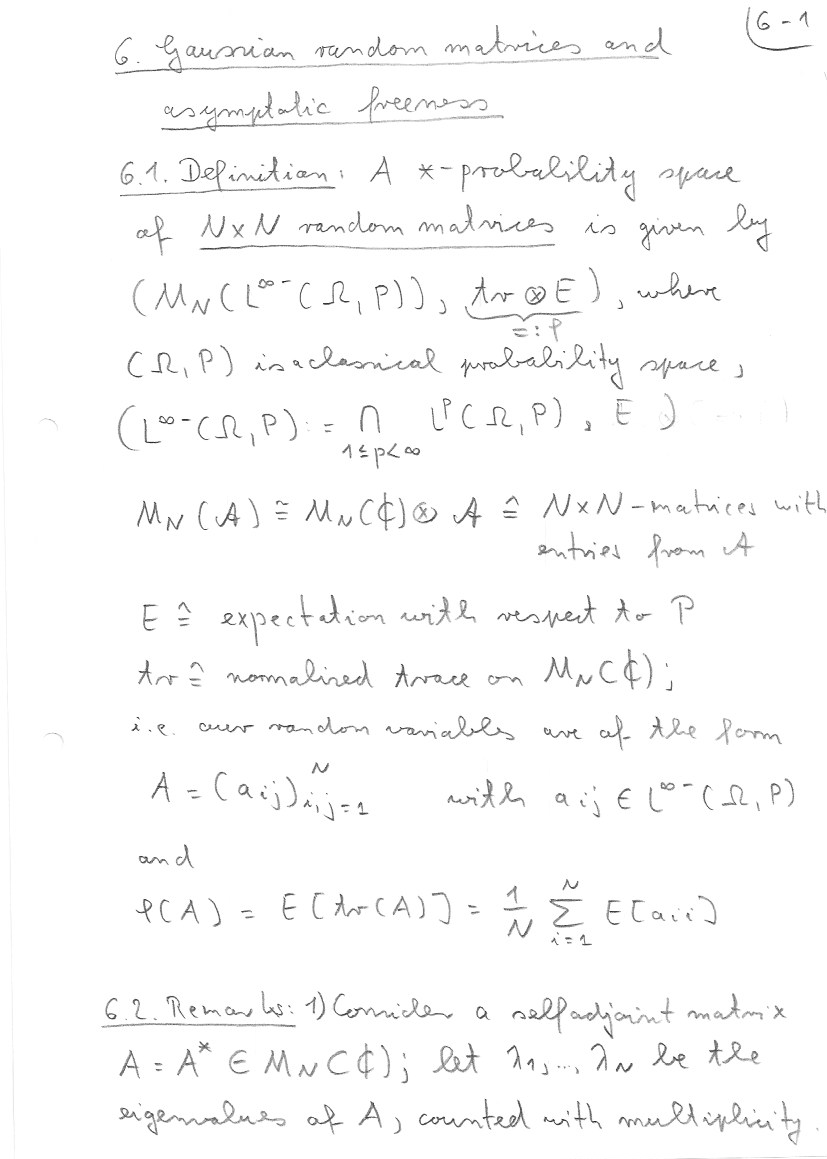 6-1
6. Gaussian random matrices and
asymptotic freeness
6.1. Definition: A *-probability space
of N×N random matrices is given by
(M_N(L^{∞-}(Ω,P)), tr⊗E), where
=:φ
(Ω,P) is a classical probability space,
(L^{∞-}(Ω,P) := ⋂_{1≤p<∞} L^p(Ω,P), E)
M_N(𝒜) ≅ M_N(ℂ)⊗𝒜 ≙ N×N-matrices with
entries from 𝒜
E ≙ expectation with respect to P
tr ≙ normalized trace on M_N(ℂ);
i.e. our random variables are of the form
A = (a_{ij})_{i,j=1}^N with a_{ij} ∈ L^{∞-}(Ω,P)
and
φ(A) = E[tr(A)] = 1/N ∑_{i=1}^N E[a_{ii}]
6.2. Remarks: 1) Consider a selfadjoint matrix
A = A* ∈ M_N(ℂ); let λ_1,..., λ_N be the
eigenvalues of A, counted with multiplicity.